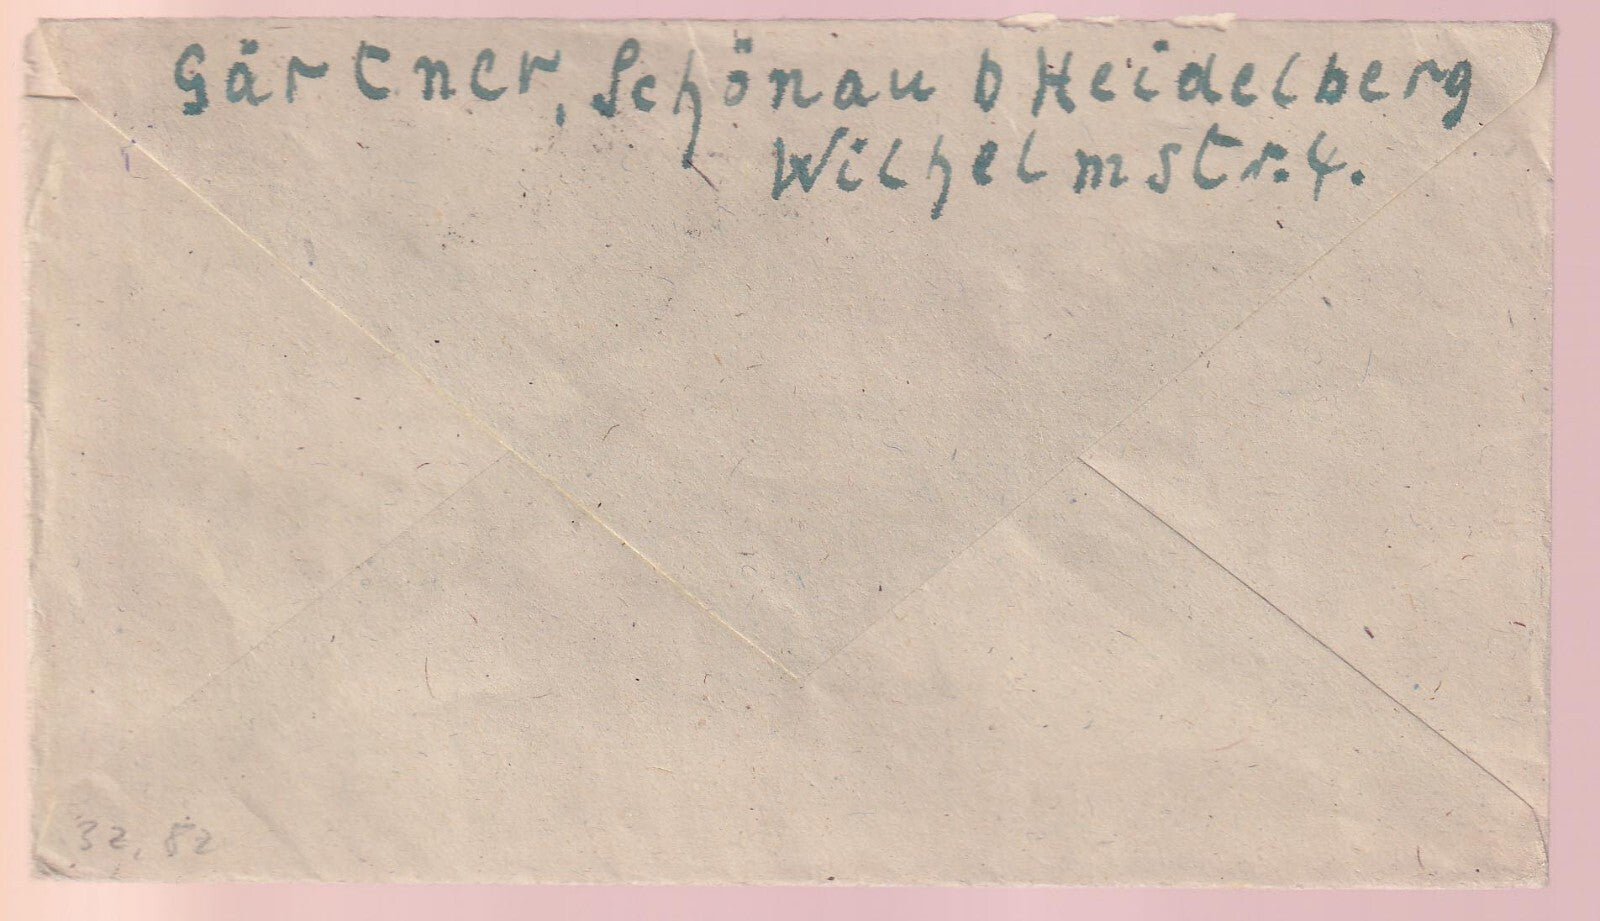 Gärtner, Schönau b Heidelberg
Wilhelmstr. 4.
32, 82